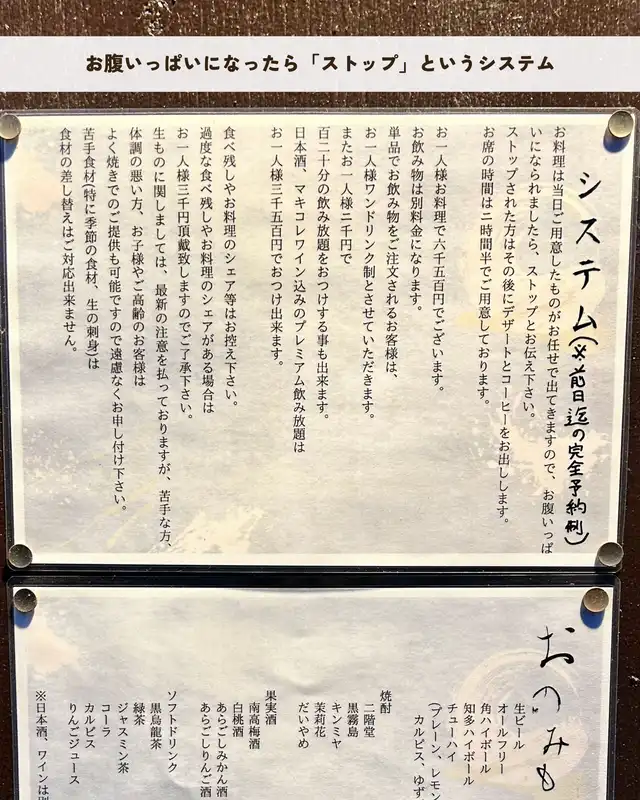 お腹いっぱいになったら「ストップ」というシステム
システム(※前日迄の完全予約制)
お料理は当日ご用意したものがお任せで出てきますので、お腹いっぱ
いになられましたら、ストップとお伝え下さい。
ストップされた方はその後にデザートとコーヒーをお出しします。
お席の時間は二時間半でご用意しております。
お一人様お料理で六千五百円でございます。
お飲み物は別料金になります。
単品でお飲み物をご注文されるお客様は、
お一人様ワンドリンク制とさせていただきます。
またお一人様二千円で
百二十分の飲み放題をおつけする事も出来ます。
日本酒、マキコレワイン込みのプレミアム飲み放題は
お一人様三千五百円でおつけ出来ます。
食べ残しやお料理のシェア等はお控え下さい。
過度な食べ残しやお料理のシェアがある場合は
お一人様三千円頂戴致しますのでご了承下さい。
生ものに関しましては、最新の注意を払っておりますが、苦手な方、
体調の悪い方、お子様やご高齢のお客様は
よく焼きでのご提供も可能ですので遠慮なくお申し付け下さい。
苦手食材(特に季節の食材、生の刺身)は
食材の差し替えはご対応出来ません。
おのみも
生ビール
オールフリー
角ハイボール
知多ハイボール
チューハイ
(プレーン、レモン
カルピス、ゆず
焼酎
二階堂
黒霧島
キンミヤ
茉莉花
だいやめ
果実酒
南高梅酒
白桃酒
あらごしみかん酒
あらごしりんご酒
ソフトドリンク
黒烏龍茶
緑茶
ジャスミン茶
コーラ
カルピス
りんごジュース
※日本酒、ワインは別